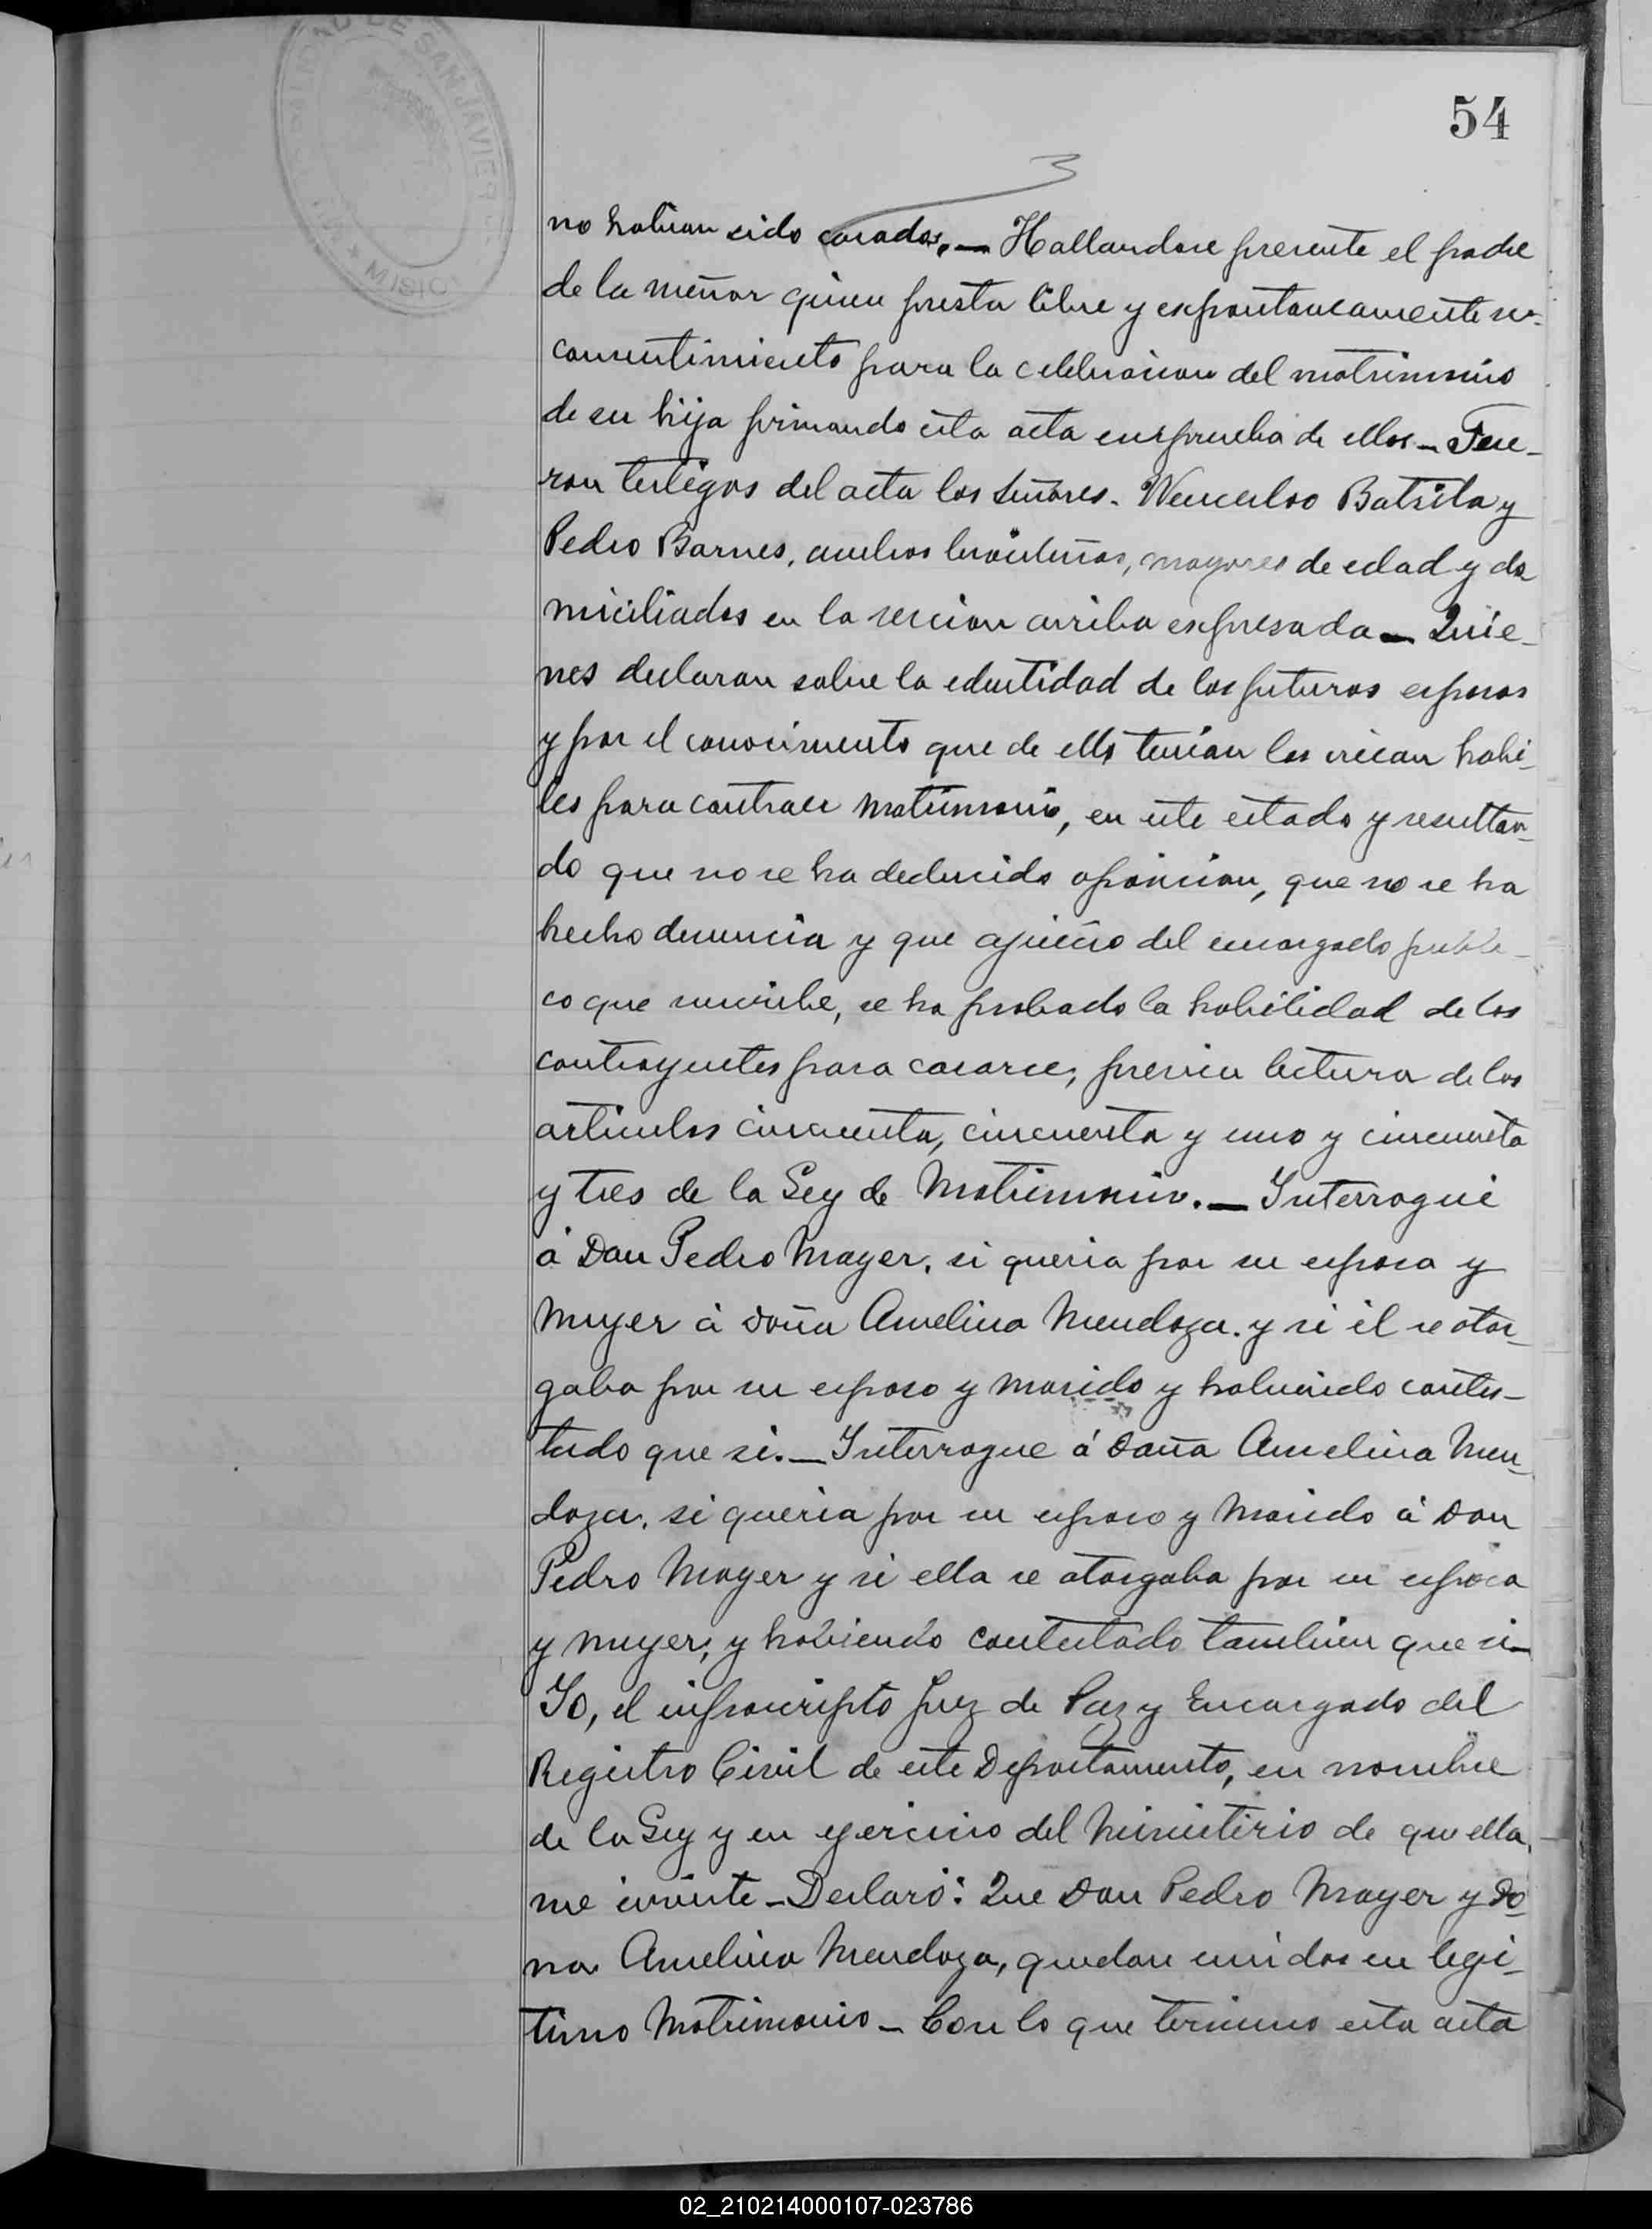 54
no habian sido casados. — Hallandose presente el padre
de la meñor quien presta libre y espontaneamente su
consentimiento para la celebracion del matrimonio
de su hija firmando esta acta en prueba de ellos — Fue-
ron testigos del acta los señores. Wenceslao Batista y
Pedro Barnes, ambos brasileños, mayores de edad y do
miciliados en la seccion arriba espresada — Quie-
nes declaran sobre la edentidad de los futuros esposos
y por el conocimiento que de ellos tenian los creian habi-
les para contraer matrimonio, en este estado y resultan-
do que no se ha deducido oposicion, que no se ha
hecho denuncia y que ajuicio del encargado publi-
co que suscribe, se ha probado la habilidad de los
contrayentes para casarse, previa lectura de los
articulos cincuenta, cincuenta y uno y cincuenta
y tres de la Ley de Matrimonio. — Interrogué
á Don Pedro Mayer, si queria por su esposa y
muyer á doña Amelina Mendoza. y si él se otor-
gaba por su esposo y marido y habiendo contes-
tado que si. — Interrogue á Doña Amelina Men-
doza, si queria por su esposo y marido á Don
Pedro Mayer y si ella se otorgaba por su esposa
y muyer, y habiendo contestado tambien que si —
Yo, el infrascripto Juez de Paz y Encargado del
Registro Civil de este Departamento, en nombre
de la Ley y en ejercicio del Ministerio de que ella
me inviste — Declaró: Que Don Pedro Mayer y Do
na Amelina Mendoza, quedan unidos en legi-
timo Matrimonio — Con lo que termino esta acta
SAN JAVIER
MISIO
02_210214000107-023786